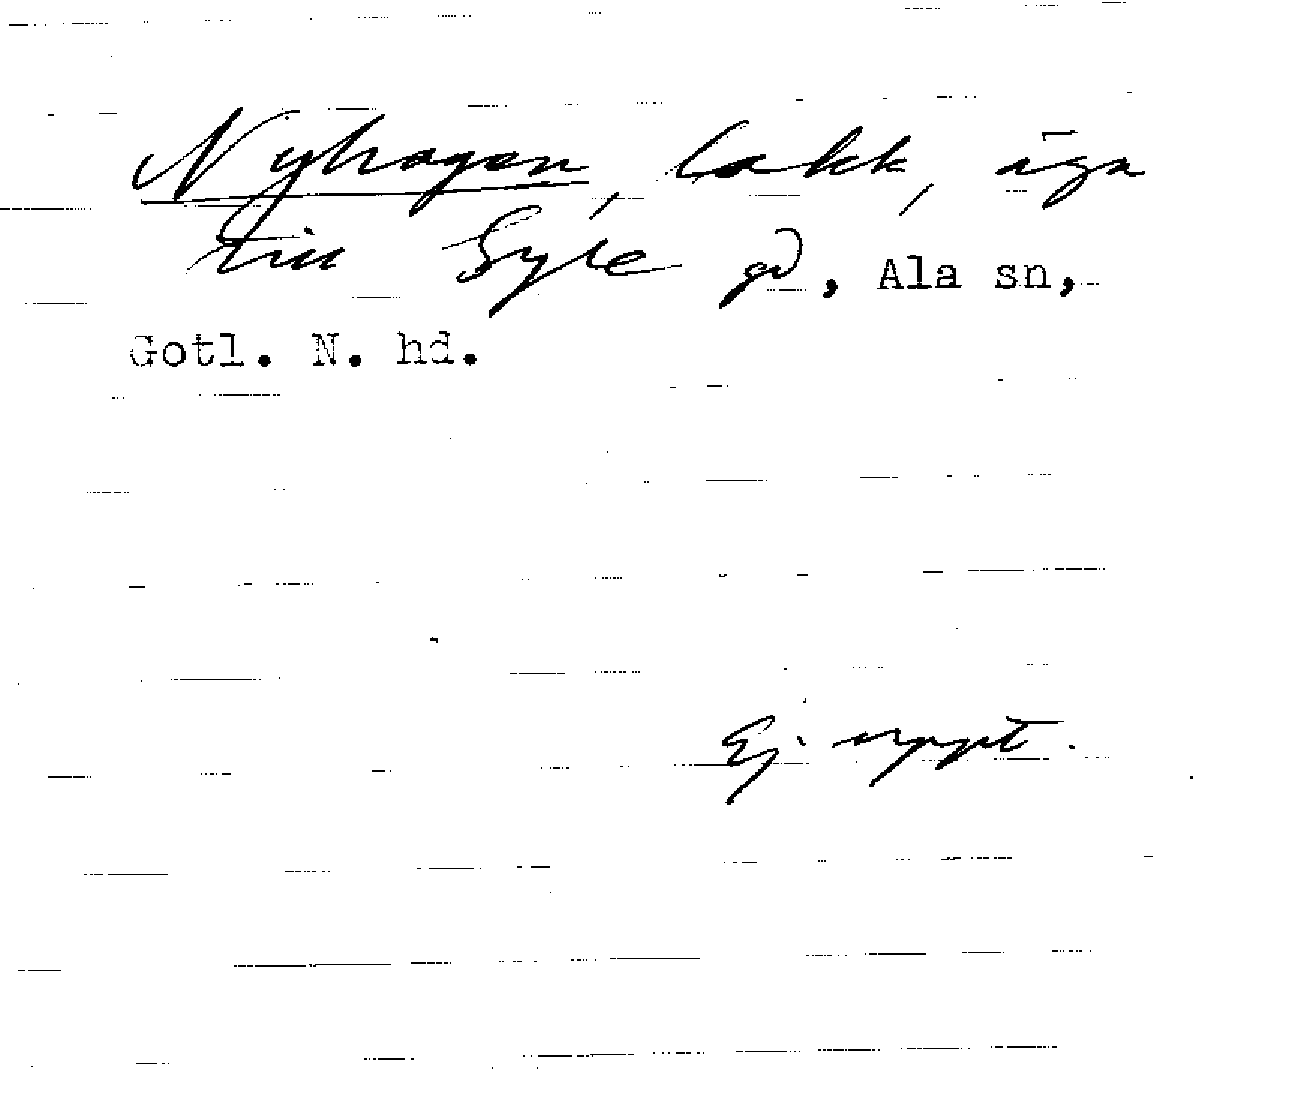 Nyhagen, lokk, äga
till Syle gd, Ala sn,
Gotl. N. hd.
Ej uppt.